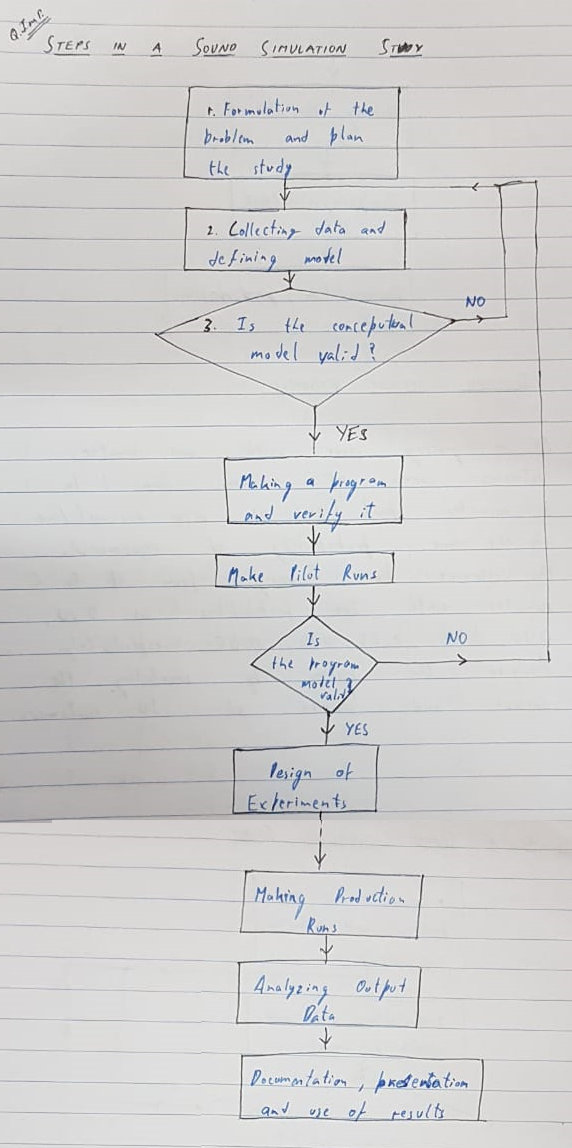 Q.Imp.
STEPS IN A SOUND SIMULATION STUDY
1. Formulation of the
problem and plan
the study
2. Collecting data and
defining model
NO
3. Is the conceputeral
model valid?
YES
Making a program
and verify it
Make Pilot Runs
Is
the program
model
valid?
NO
YES
Design of
Experiments
Making Production
Runs
Analyzing Output
Data
Documentation, presentation
and use of results